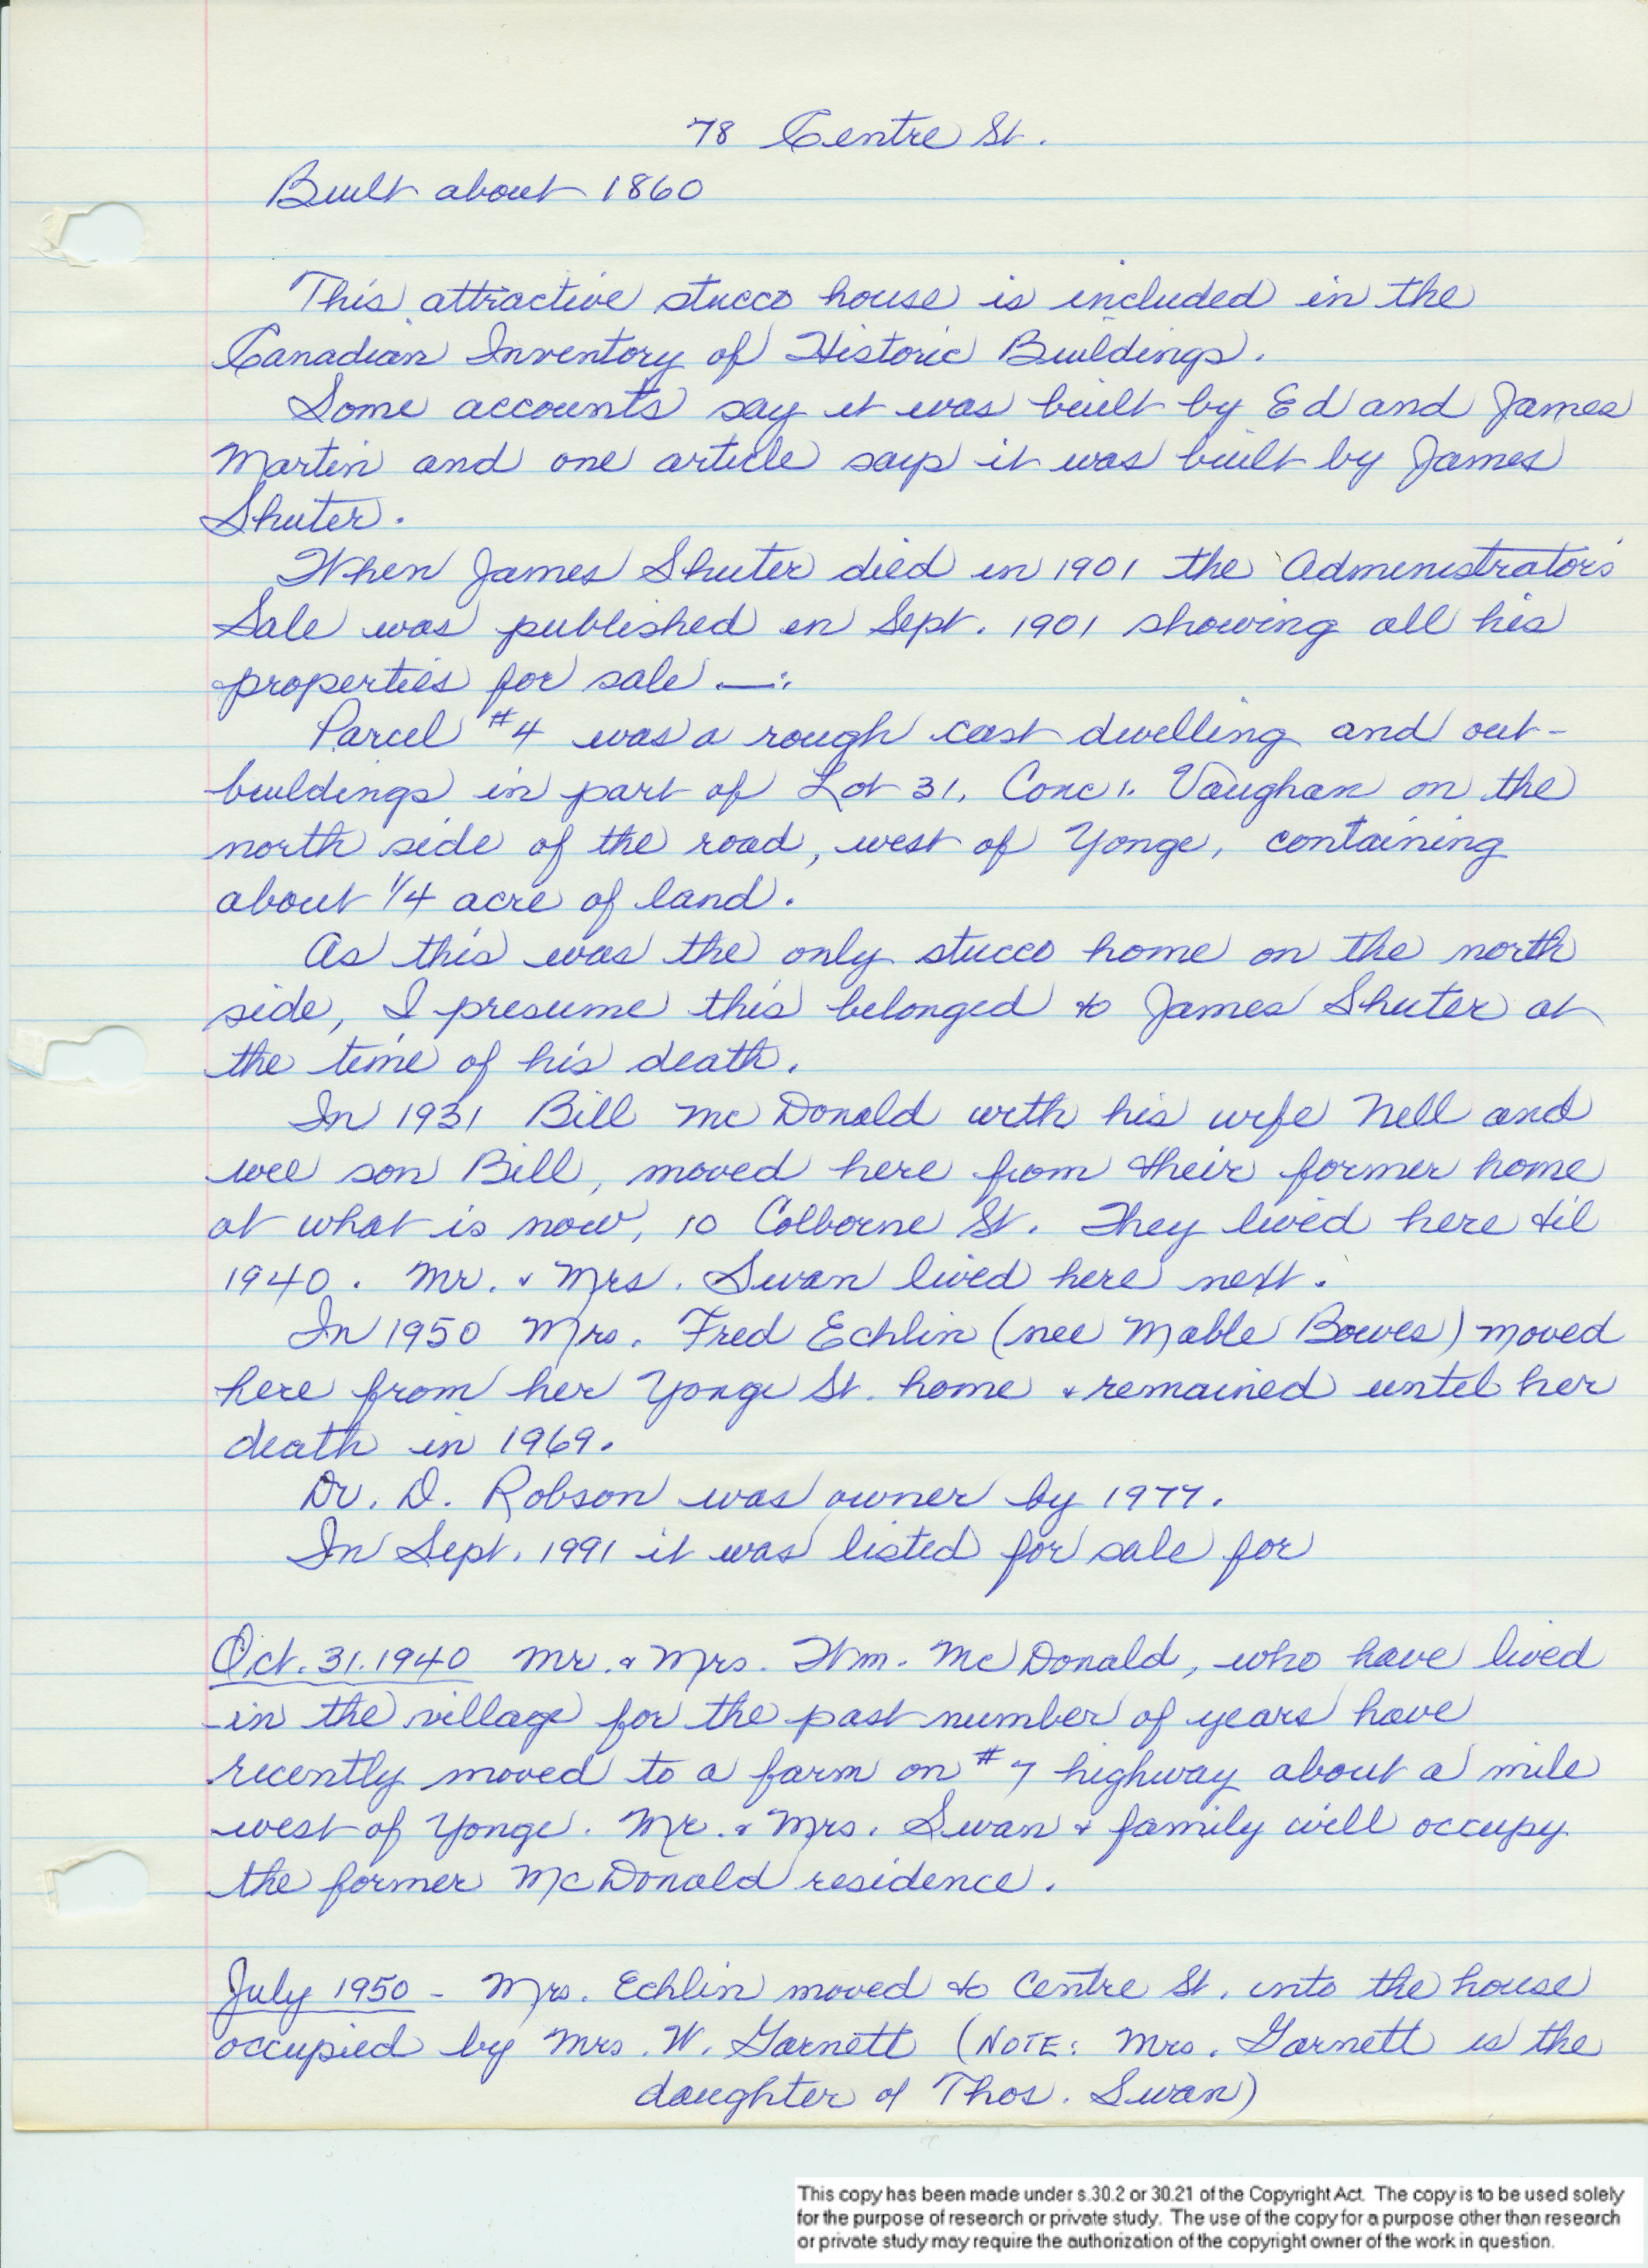 78 Centre St.
Built about 1860
This attractive stucco house is included in the
Canadian Inventory of Historic Buildings.
Some accounts say it was built by Ed and James
Martin and one article says it was built by James
Shuter.
When James Shuter died in 1901 the Administrator's
Sale was published in Sept. 1901 showing all his
properties for sale —:
Parcel #4 was a rough cast dwelling and out-
buildings in part of Lot 31, Conc 1. Vaughan on the
north side of the road, west of Yonge, containing
about 1/4 acre of land.
As this was the only stucco home on the north
side, I presume this belonged to James Shuter at
the time of his death.
In 1931 Bill McDonald with his wife Nell and
wee son Bill, moved here from their former home
at what is now, 10 Colborne St. They lived here til
1940. Mr. & Mrs. Swan lived here next.
In 1950 Mrs. Fred Echlin (nee Mable Bowes) moved
here from her Yonge St. home & remained until her
death in 1969.
Dr. D. Robson was owner by 1977.
In Sept. 1991 it was listed for sale for
Oct. 31. 1940 Mr. & Mrs. Wm. McDonald, who have lived
in the village for the past number of years have
recently moved to a farm on #7 highway about a mile
west of Yonge. Mr. & Mrs. Swan & family will occupy
the former McDonald residence.
July 1950 - Mrs. Echlin moved to Centre St. into the house
occupied by Mrs. W. Garnett (NOTE: Mrs. Garnett is the
daughter of Thos. Swan)
This copy has been made under s.30.2 or 30.21 of the Copyright Act. The copy is to be used solely
for the purpose of research or private study. The use of the copy for a purpose other than research
or private study may require the authorization of the copyright owner of the work in question.